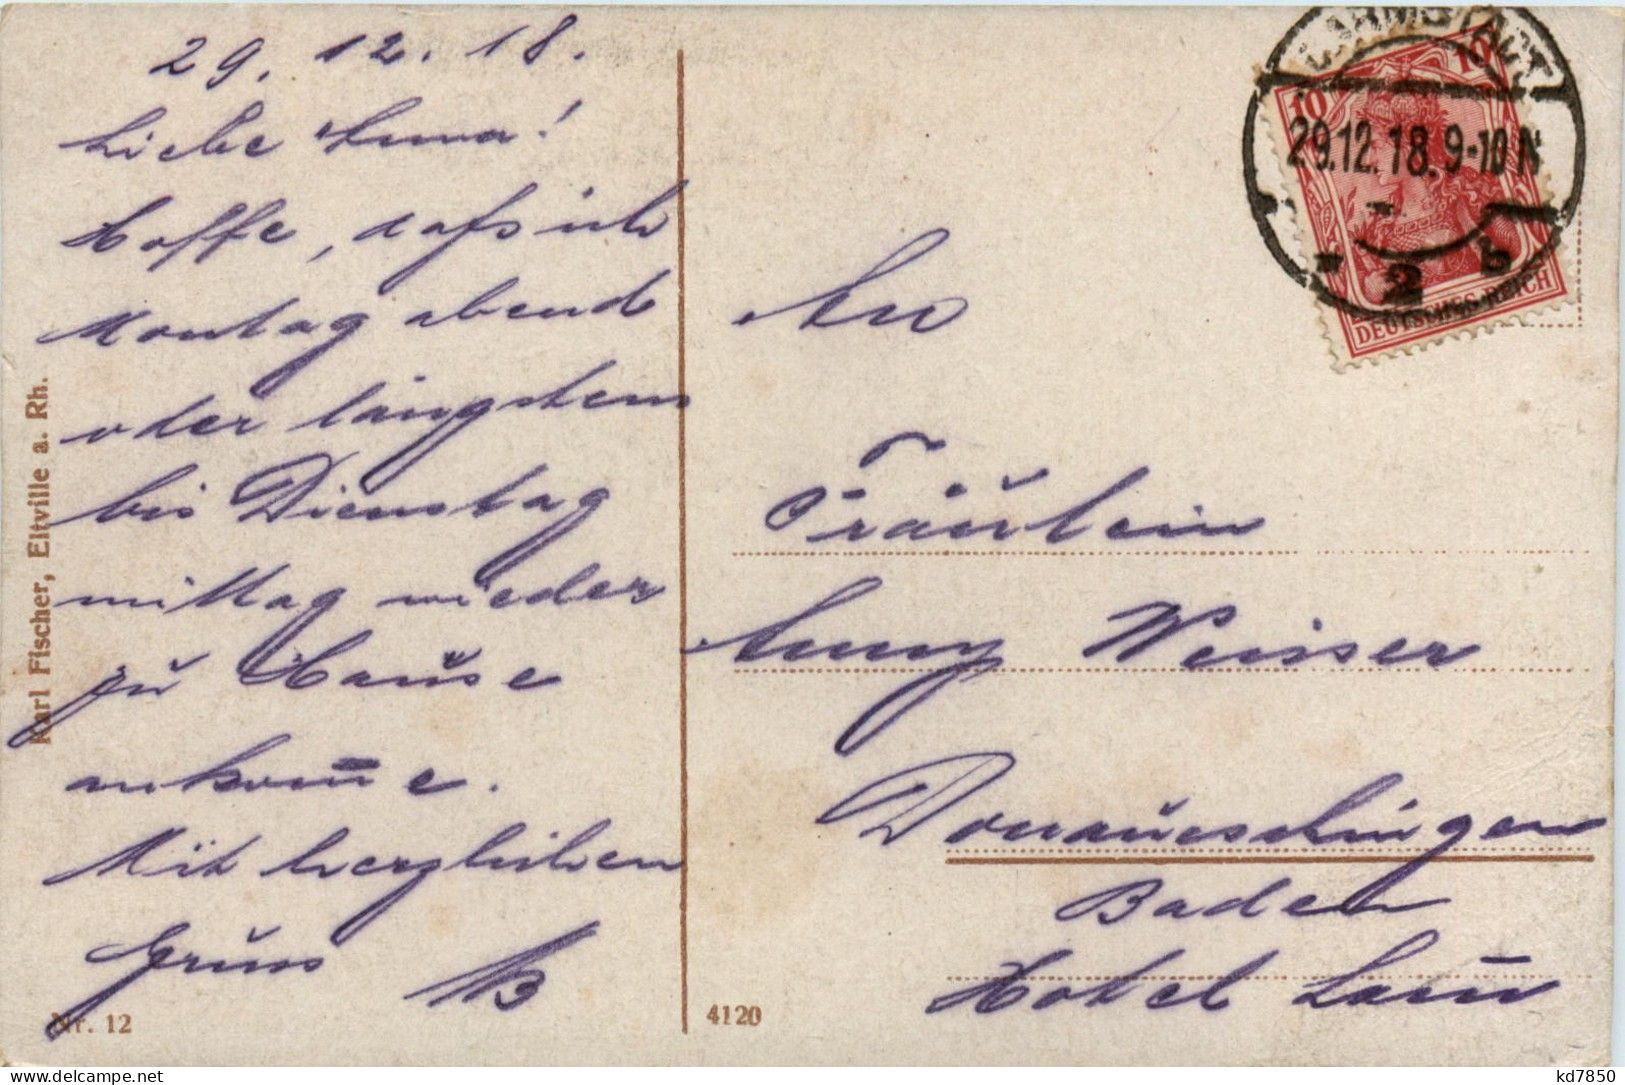 29. 12. 18.
Liebe Anna!
Hoffe, dass ich
Montag abend
oder längstens
bis Dienstag
mittag wieder
zu Hause
ankom̅e.
Mit herzlichen
Gruss
Karl Fischer, Eltville a. Rh.
Nr. 12
4120
DARMSTADT
29.12.18.9-10N
* 2 b
10 10
DEUTSCHES REICH
An
Fräulein
Anny Weisser
Donaueschingen
Baden
Hotel Lam̅
delcampe.net
kd7850